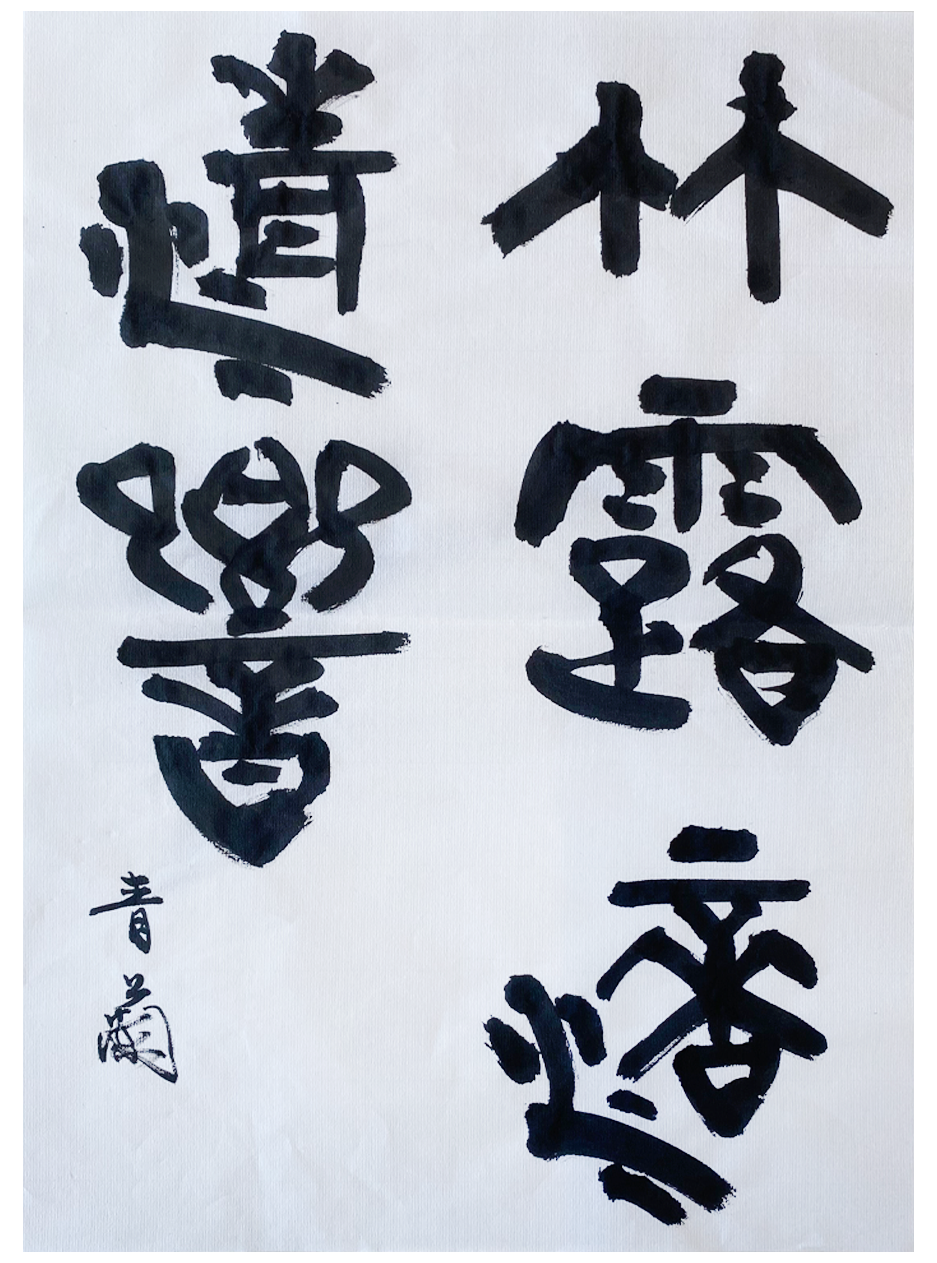 竹露滴
清響
青蘭